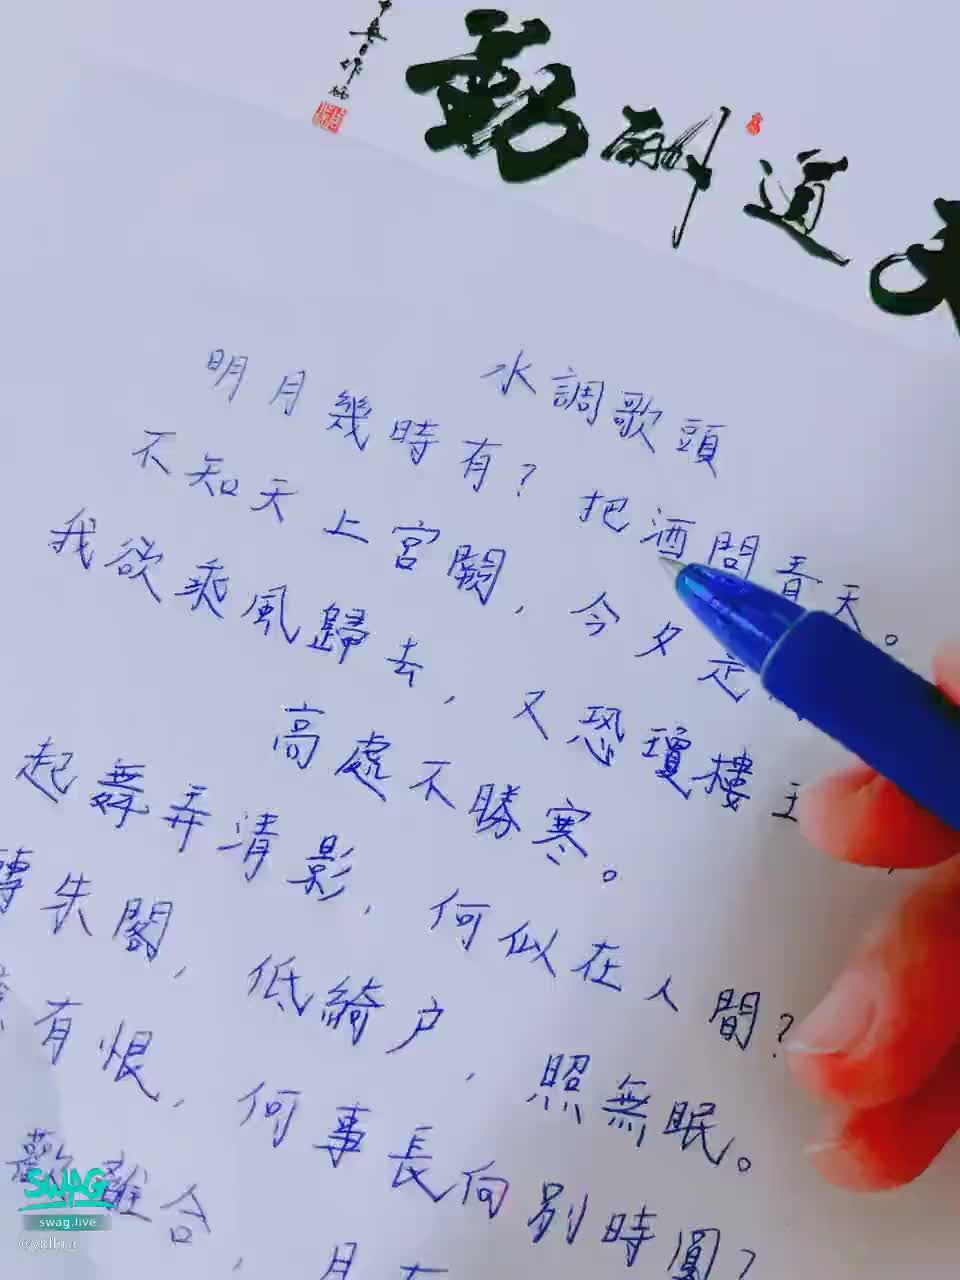 天道酬勤
水調歌頭
明月幾時有？把酒問青天。
不知天上宮闕，今夕是
我欲乘風歸去，又恐瓊樓玉
高處不勝寒。
起舞弄清影，何似在人間？
轉朱閣，低綺户，照無眠。
應有恨，何事長向别時圓？
歡離合，月有
SWAG
swag.live